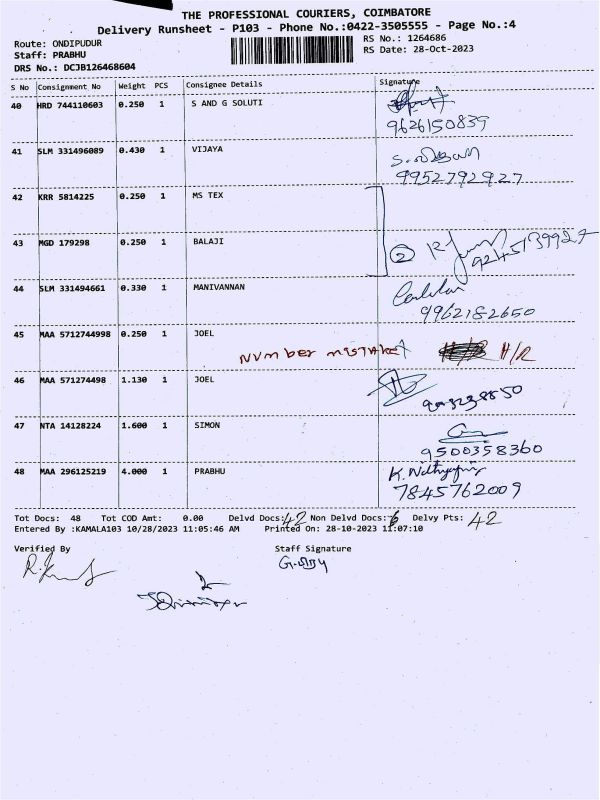 THE PROFESSIONAL COURIERS, COIMBATORE
Delivery Runsheet - P103 - Phone No.:0422-3505555 - Page No.:4
Route: ONDIPUDUR
RS No.: 1264686
Staff: PRABHU
RS Date: 28-Oct-2023
DRS No.: DCJB126468604
S No Consignment No Weight PCS Consignee Details Signature
40 HRD 744110603 0.250 1 S AND G SOLUTI
9626150839
41 SLM 331496089 0.430 1 VIJAYA
9952792927
42 KRR 5814225 0.250 1 MS TEX
43 MGD 179298 0.250 1 BALAJI
2 9245139927
44 SLM 331494661 0.330 1 MANIVANNAN
9962182650
45 MAA 5712744998 0.250 1 JOEL
NUMBER MISTAKE H/R
46 MAA 571274498 1.130 1 JOEL
47 NTA 14128224 1.600 1 SIMON
9500358360
48 MAA 296125219 4.000 1 PRABHU
7845762009
Tot Docs: 48 Tot COD Amt: 0.00 Delvd Docs: 42 Non Delvd Docs: 6 Delvy Pts: 42
Entered By :KAMALA103 10/28/2023 11:05:46 AM Printed On: 28-10-2023 11:07:10
Verified By Staff Signature